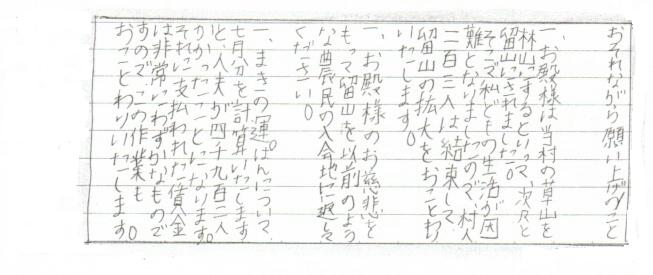 おそれながら願い上げのこと
一、お殿様は当村の草山を
林山にするといって、次々と
留山にされました。
そこで私どもの生活が困
難となりましたので、村人
二百三人は結束して
留山の拡大をおことわり
いたします。
一、お殿様のお慈悲を
もって留山を以前のよう
な農民の入会地に返して
ください。
一、まきの運ぱんについて、
七月分を計算いたします
と、人夫が四千九百二人
かかったことになります。
それに支払われた賃金
は非常にわずかなもので
すので、この作業も
おことわりいたします。